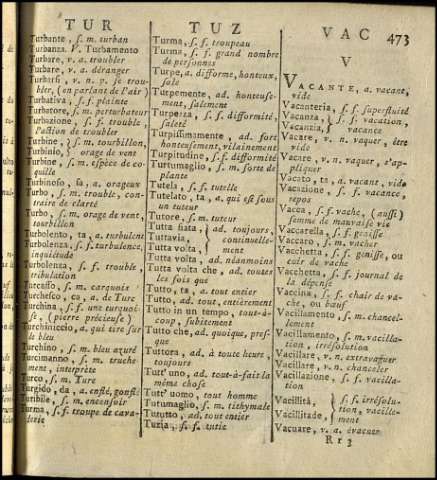 TUR
TUZ
VAC
473
Turbante, s. m. turban
Turbanza. V. Turbamento
Turbare, v. a. troubler
Turbare, v. a. déranger
Turbarsi, v. n. p. se trou-
bler, (en parlant de l'air)
Turbativa, s. f. plainte
Turbatore, s. m. perturbateur
Turbazione, s. f. trouble,
l'action de troubler
Turbine, s. m. tourbillon,
Turbinio, orage de vent
Turbine, s. m. espèce de co-
quille
Turbinoso, sa, a. orageux
Turbo, s. m. trouble, con-
traire de clarté
Turbo, s. m. orage de vent,
tourbillon
Turbolento, ta, a. turbulent
Turbolenza, s. f. turbulence,
inquiétude
Turbolenza, s. f. trouble,
tribulation
Turcasso, s. m. carquois
Turchesco, ca, a. de Turc
Turchina, s. f. une turquoi-
se (pierre précieuse)
Turchiniccio, a. qui tire sur
le bleu
Turchino, s. m. bleu azuré
Turcimanno, s. m. truche-
ment, interprète
Turco, s. m. Turc
Turgido, da, a. enflé, gonflé
Turibile, s. m. encensoir
Turma, s. f. troupe de cava-
lerie
Turma, s. f. troupeau
Turma, s. f. grand nombre
de personnes
Turpe, a. difforme, honteux,
sale
Turpemente, ad. honteuse-
ment, salement
Turpezza, s. f. difformité,
saleté
Turpissimamente, ad. fort
honteusement, vilainement
Turpitudine, s. f. difformité
Turtumaglio, s. m. sorte de
plante
Tutela, s. f. tutelle
Tutelato, ta, a. qui est sous
un tuteur
Tutore, s. m. tuteur
Tutta fiata, ad. toujours,
Tuttavia, continuelle-
Tutta volta, ment
Tutta volta, ad. néanmoins
Tutta volta che, ad. toutes
les fois que
Tutto, ta, a. tout entier
Tutto, ad. tout, entièrement
Tutto in un tempo, tout-à-
coup, subitement
Tutto che, ad. quoique, pres-
que
Tuttora, ad. à toute heure,
toujours
Tutt' uno, ad. tout-à-fait la
même chose
Tutt' uomo, tout homme
Tutumaglio, s. m. tithymale
Tututto, ad. tout entier
Tuzia, s. f. tutie
V
VACANTE, a. vacant,
vide
Vacanteria, s. f. superfluité
Vacanza, s. f. vacation,
Vacanzia, vacance
Vacare, v. n. vaquer, être
vide
Vacare, v. n. vaquer, s'ap-
pliquer
Vacato, ta, a. vacant, vide
Vacazione, s. f. vacance,
repos
Vacca, s. f. vache, (aussi)
femme de mauvaise vie
Vaccarella, s. f. genisse
Vaccaro, s. m. vacher
Vacchetta, s. f. genisse, ou
cuir de vache
Vacchetta, s. f. journal de
la dépense
Vaccina, s. f. chair de va-
che, ou bœuf
Vacillamento, s. m. chancel-
lement
Vacillamento, s. m. vacilla-
tion, irrésolution
Vacillare, v. n. extravaguer
Vacillare, v. n. chanceler
Vacillazione, s. f. vacilla-
tion
Vacillità, s. f. irréso-
lution, vacille-
Vacillitade, ment
Vacuare, v. a. évacuer
Rr 3